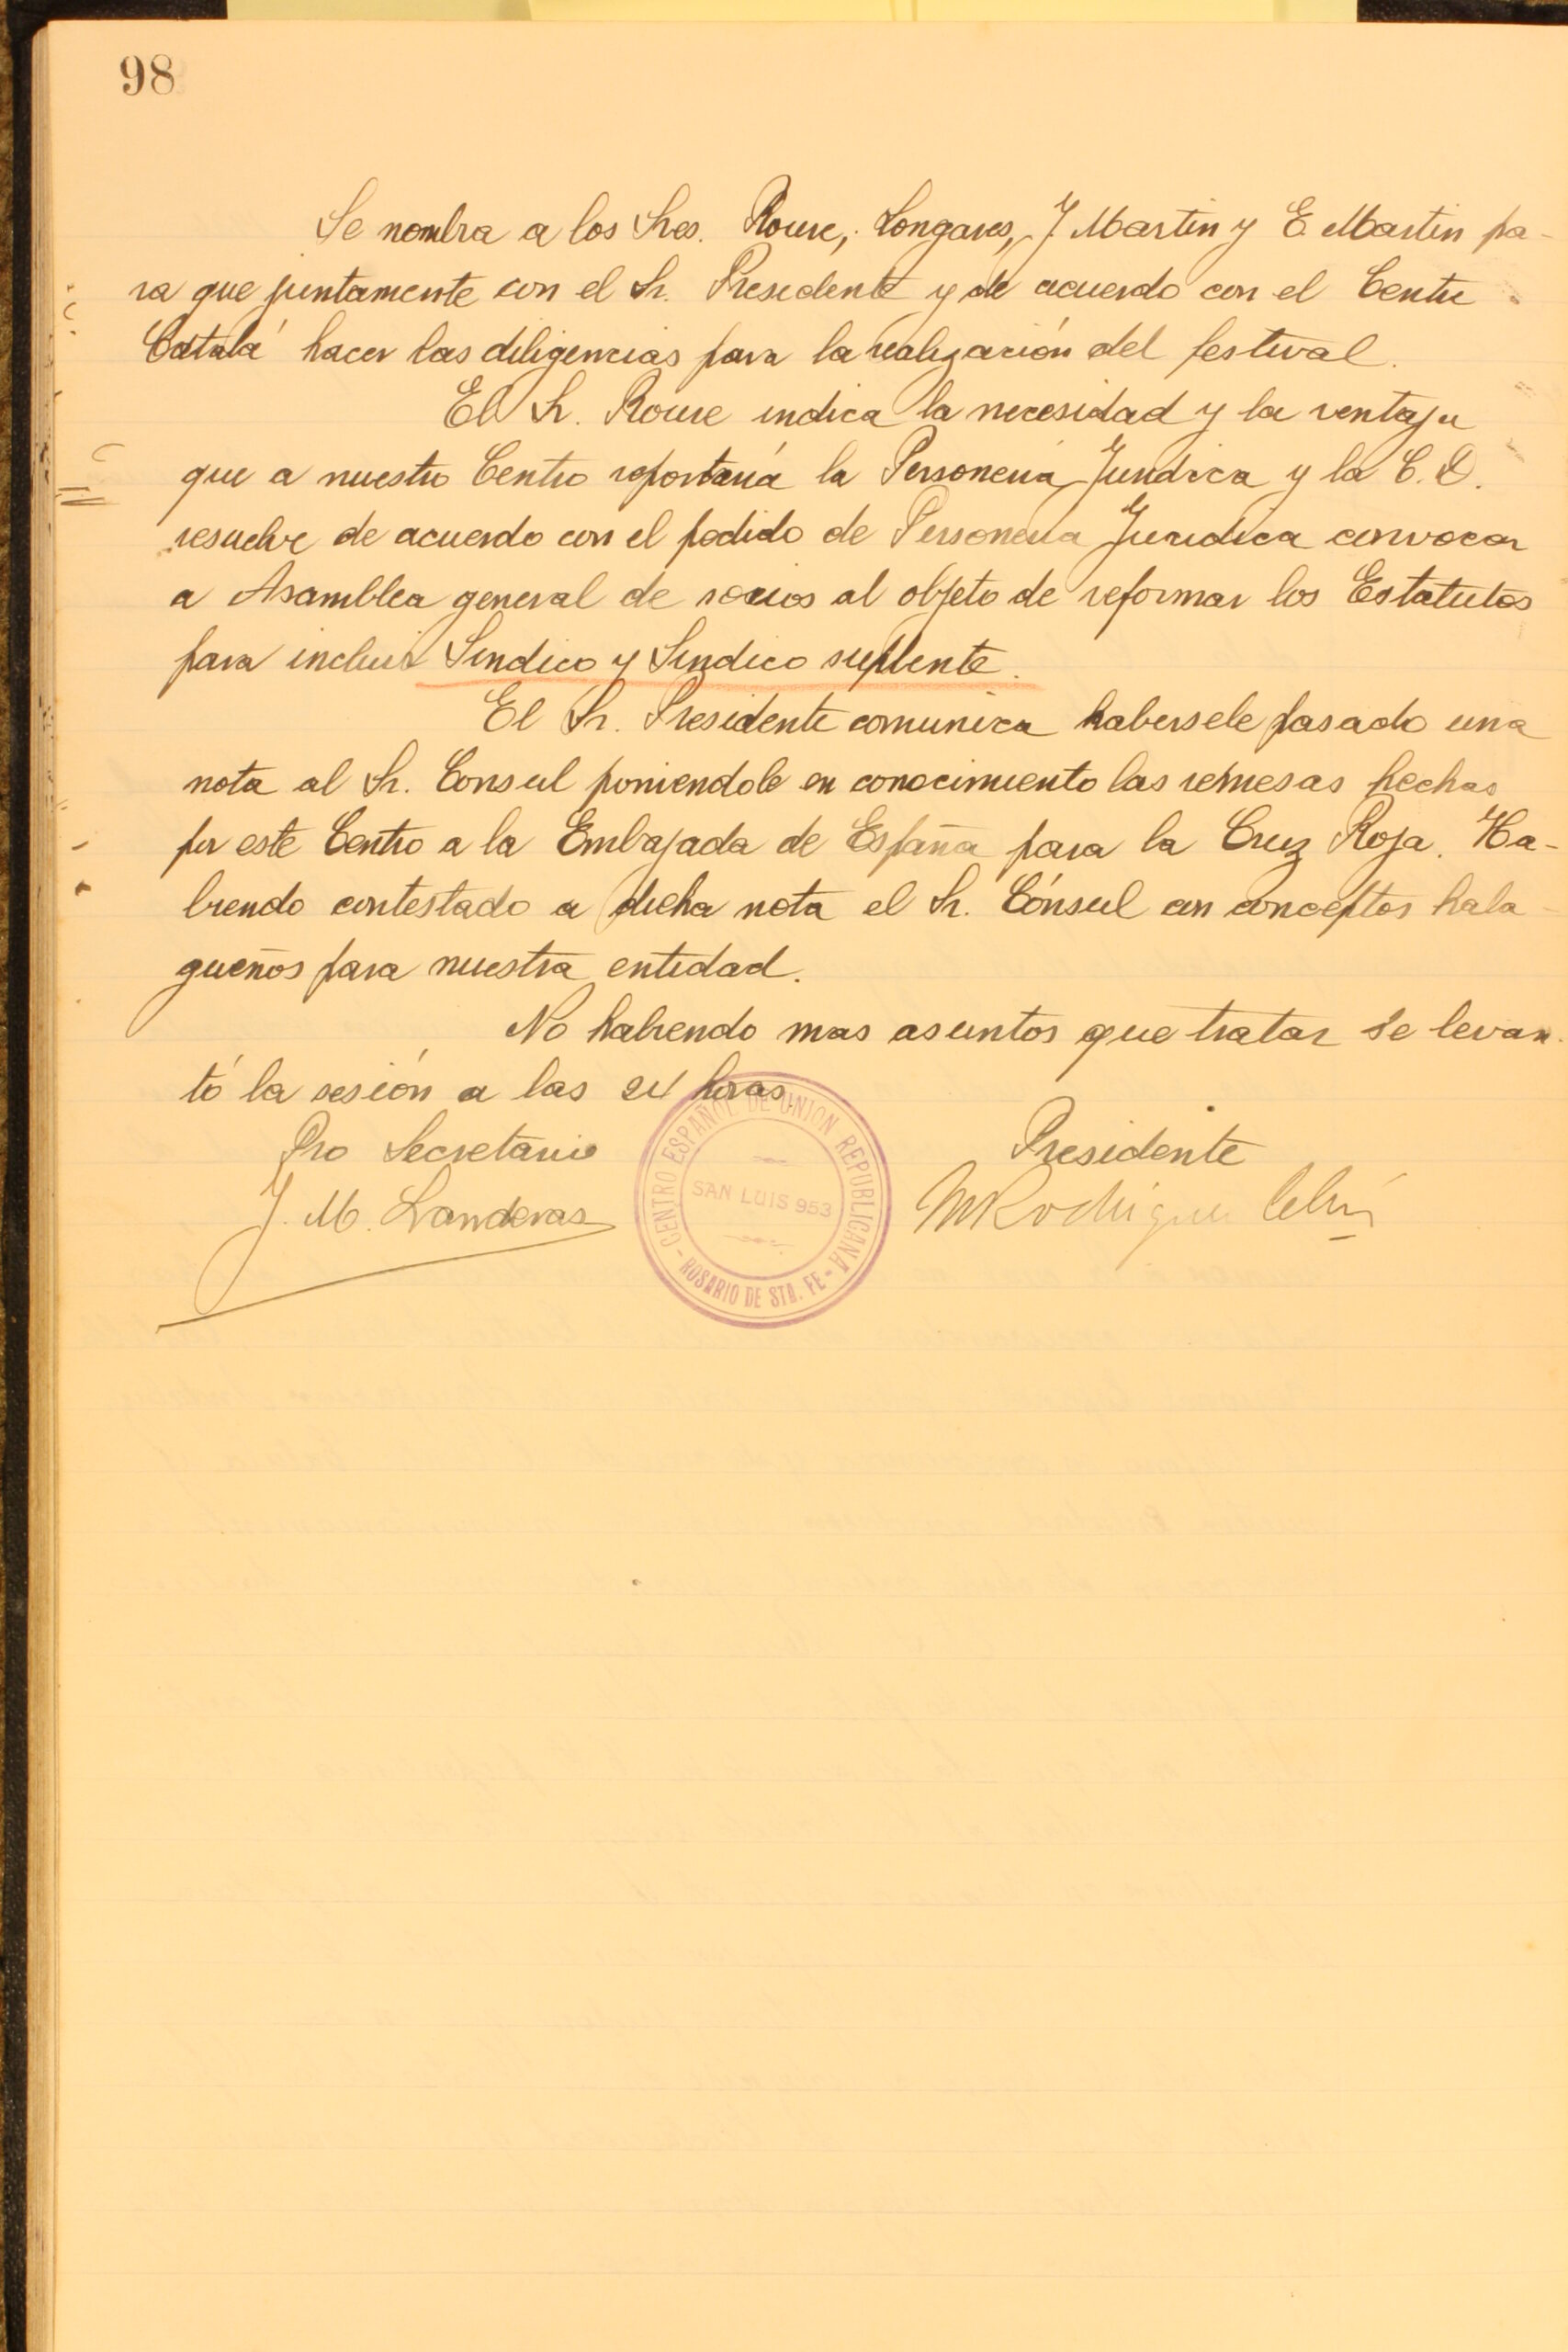 98
Se nombra a los Sres. Roure, Longares, J Martin y E. Martin pa-
ra que juntamente con el Sr. Presidente y de acuerdo con el Centre
Catalá hacer las diligencias para la realización del festival.
El Sr. Roure indica la necesidad y la ventaja
que a nuestro Centro reportaría la Personería Jurídica y la C. D.
resuelve de acuerdo con el pedido de Personeria Juridica convocar
a Asamblea general de socios al objeto de reformar los Estatutos
para incluir Sindico y Sindico suplente.
El Sr. Presidente comunica habersele pasado una
nota al Sr. Consul poniendole en conocimiento las remesas hechas
por este Centro a la Embajada de España para la Cruz Roja. Ha-
biendo contestado a dicha nota el Sr. Cónsul con conceptos hala-
gueños para nuestra entidad.
No habiendo mas asuntos que tratar se levan-
tó la sesión a las 24 horas.
Pro Secretario
Presidente
J. M. Landeras
M Rodrigue
CENTRO ESPAÑOL DE UNION REPUBLICANA
SAN LUIS 953
- ROSARIO DE STA. FE -